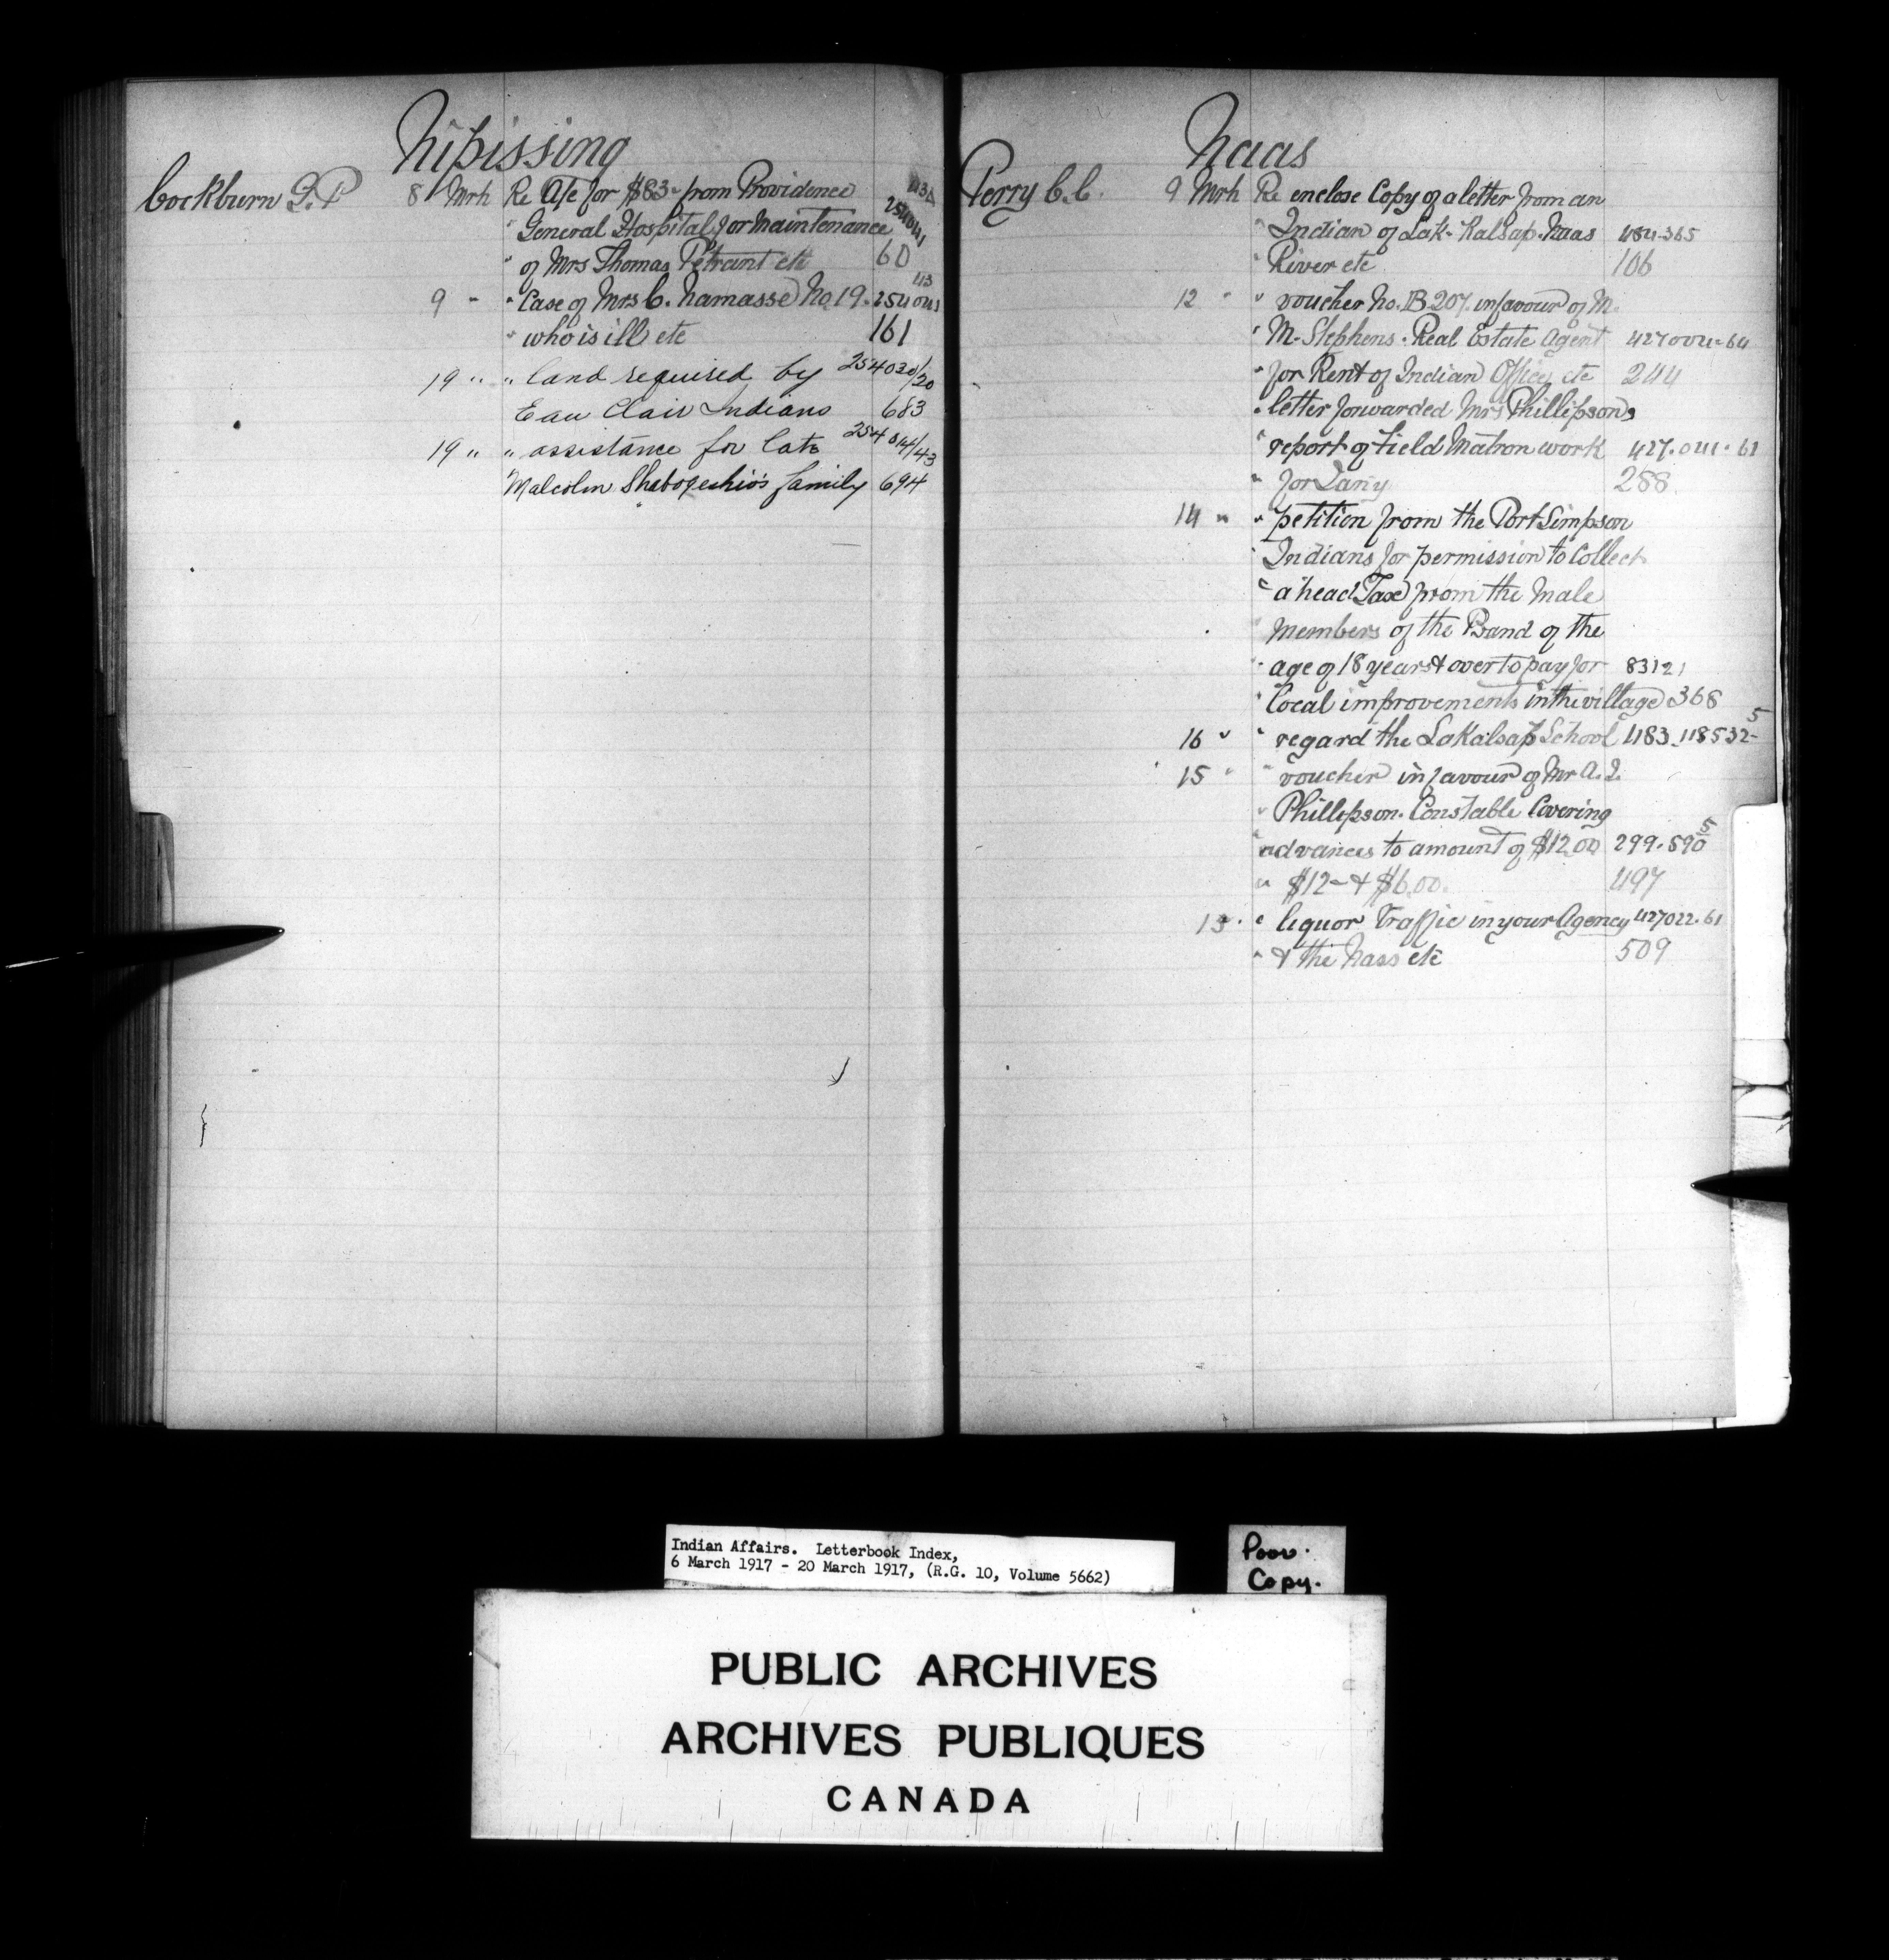 Nipissing
Cockburn G.P 8 Mrh Re A/c for $83- from Providence
" General Hospital for Maintenance 254041
" of Mrs Thomas etc 60
9 " " Case of Mrs C. Namasse No. 19.
" who is ill etc 161
19 " " land required by 254030/20
Eau Clair Indians 683
19 " " assistance for late 254014/43
Malcolm Shabogeshio's family 694
Naas
Perry C.C. 9 Mrh Re enclose Copy of a letter from an
" Indian of Lak-Kalsap. Naas 484-365
" River etc 106
12 " " voucher No. B 207. in favour of M.
" M. Stephens. Real Estate Agent 427004-64
" for Rent of Indian Office etc 244
" letter forwarded Mrs Phillipsons
" report of Field Matron work 427.041.61
" for 288
14 " " petition from the Port Simpson
" Indians for permission to Collect
" a head Tax from the Male
" Members of the Band of the
" age of 18 years & over to pay for 83121
" Local improvements in the village 368
16 " " regard the Lakalsap School 483-118532-5
15 " " voucher in favour of Mr A.
" Phillipson. Constable Covering
" advances to amount of $12.00 299.590-5
" $12- & $6.00. 497
13 . " liquor Traffic in your Agency 427022.61
" & the Nass etc 509
Indian Affairs. Letterbook Index,
6 March 1917 - 20 March 1917, (R.G. 10, Volume 5662)
Poor.
Copy.
PUBLIC ARCHIVES
ARCHIVES PUBLIQUES
CANADA